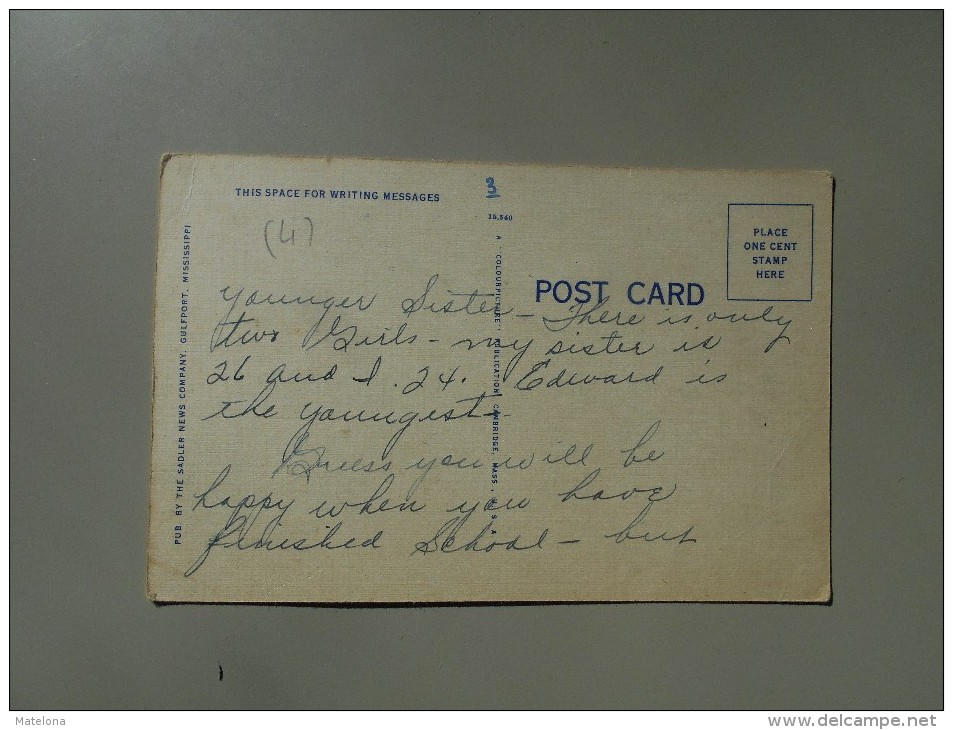 THIS SPACE FOR WRITING MESSAGES
3
15,540
(4)
PLACE
ONE CENT
STAMP
HERE
POST CARD
younger Sister - There is only
two Girls - my sister is
26 and I. 24. Edward is
the youngest -
Guess you will be
happy when you have
finished School - but
PUB. BY THE SADLER NEWS COMPANY, GULFPORT, MISSISSIPPI
A "COLOURPICTURE" PUBLICATION, CAMBRIDGE, MASS., U.S.A.
Matelona
delcampe.net